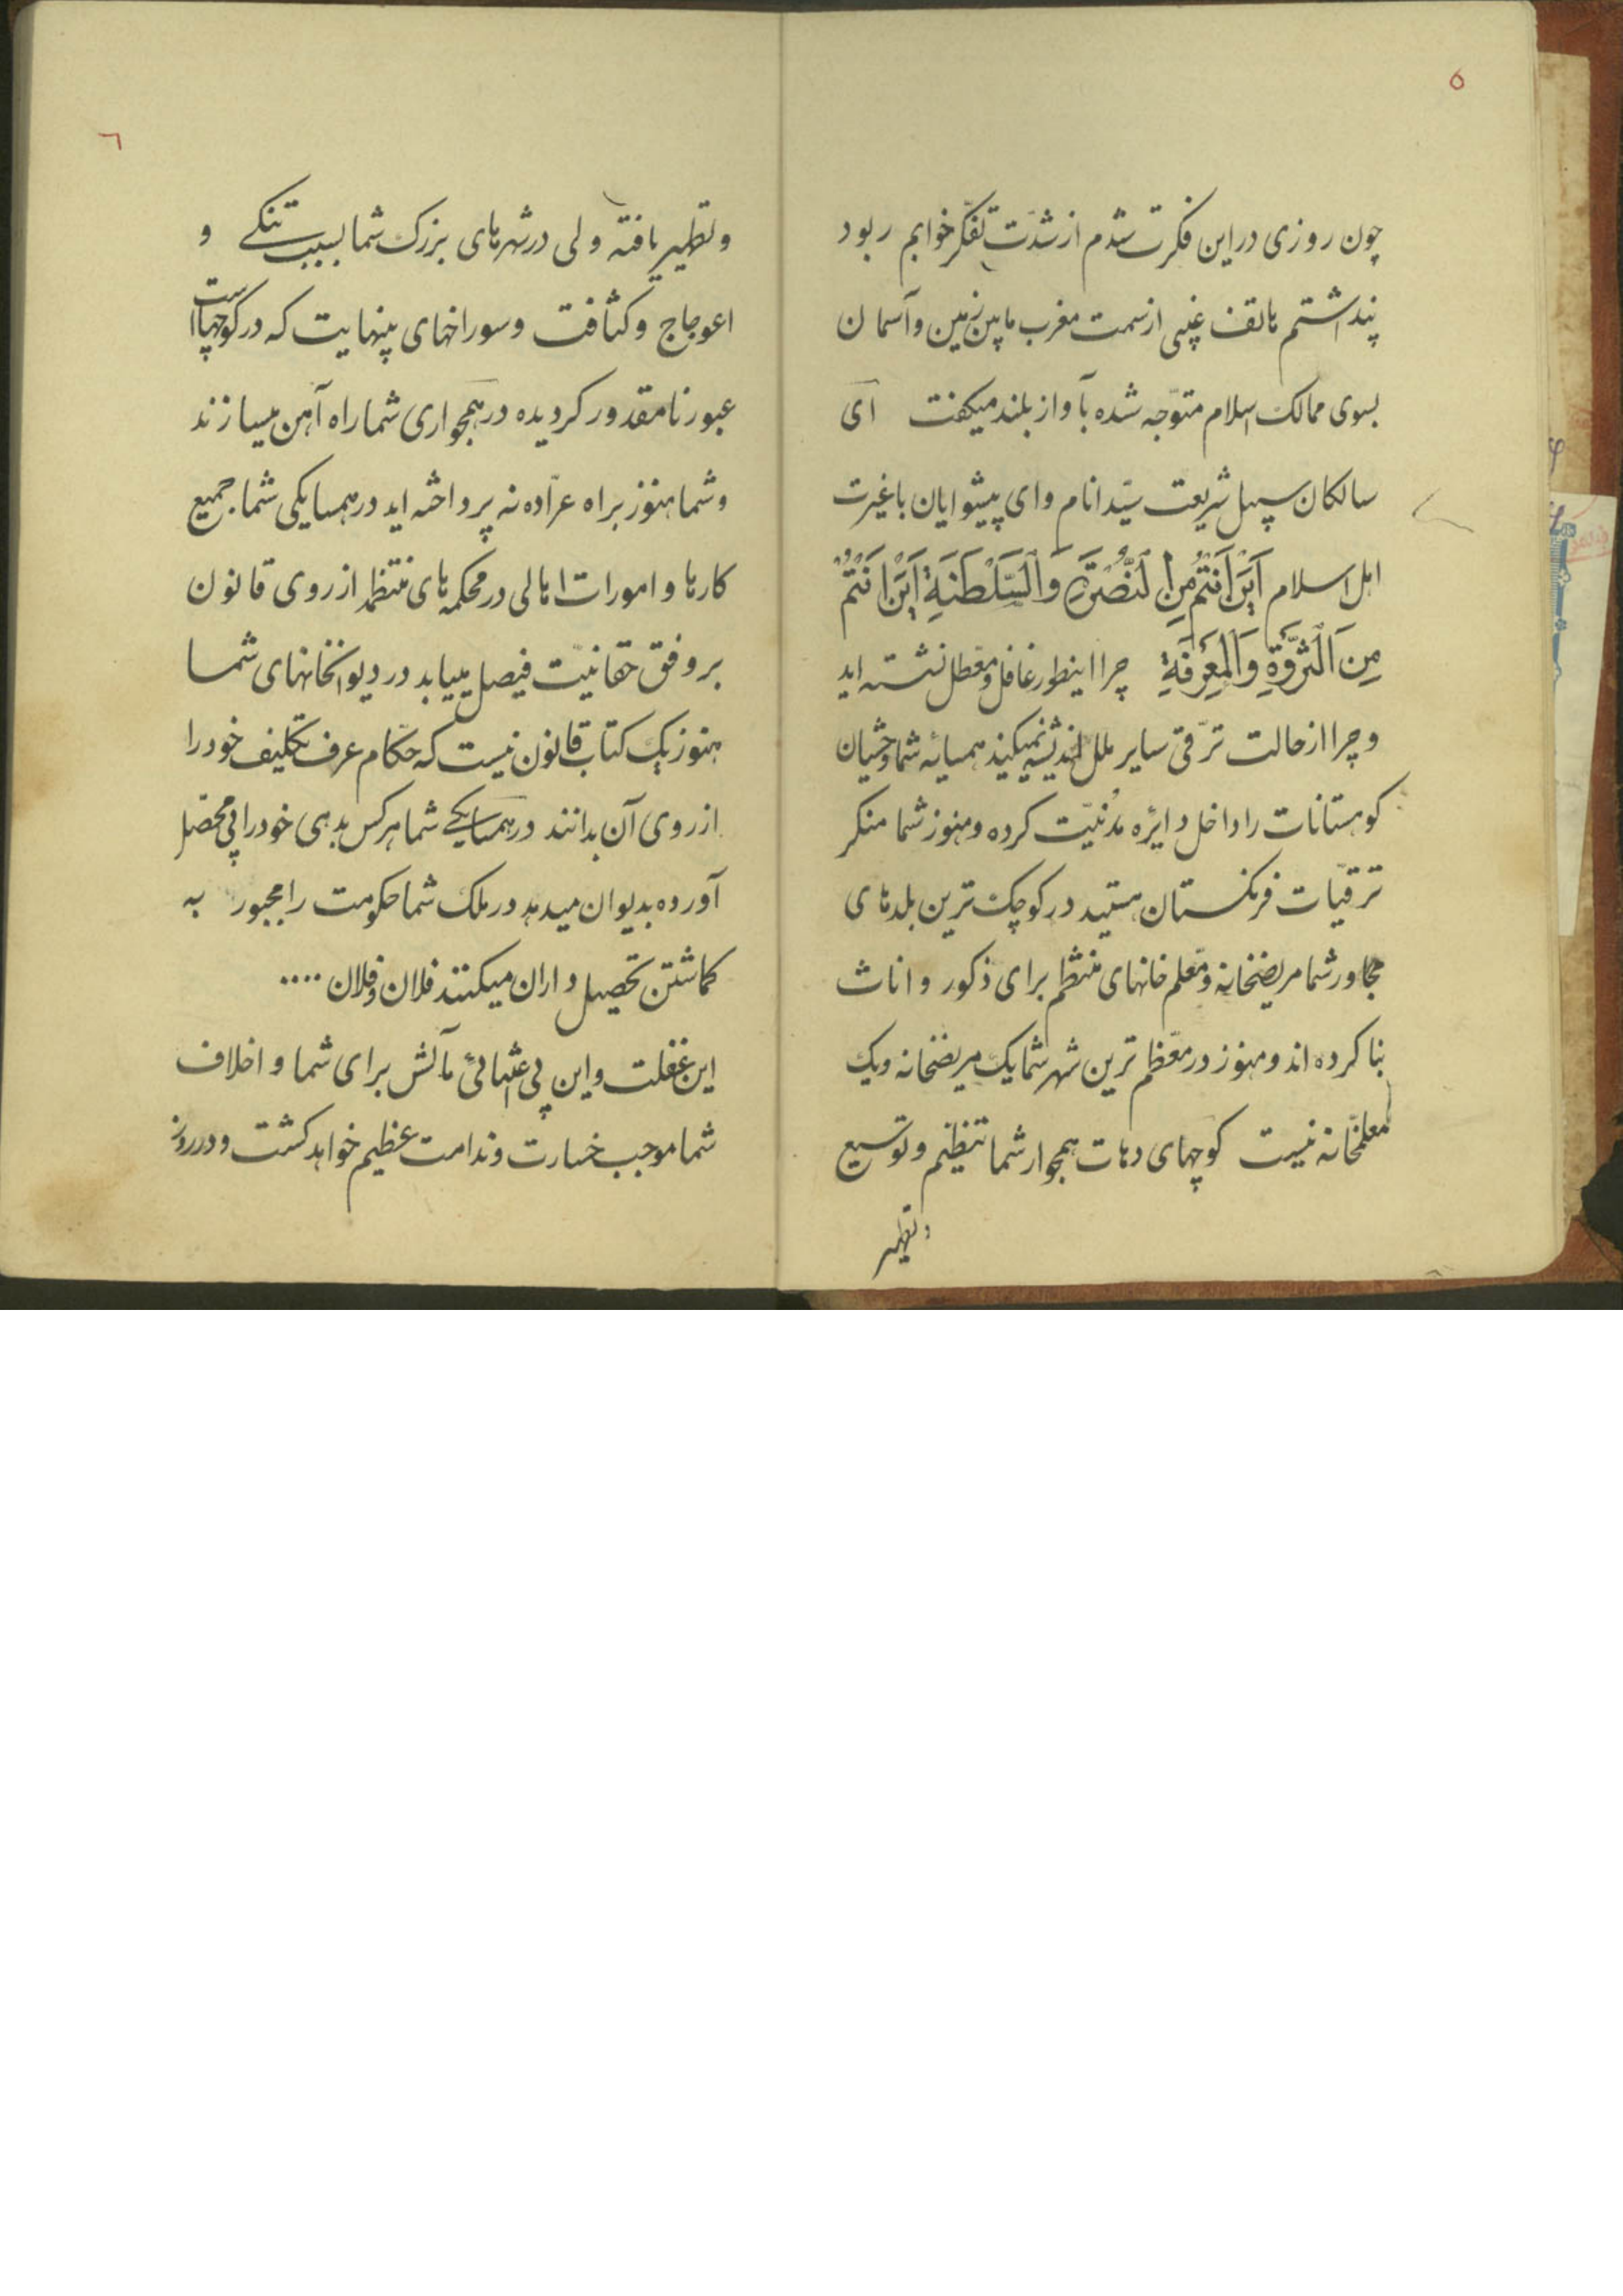 ۵
چون روزی در این فکرت شدم از شدّت تفکّر خوابم ربود
پنداشتم هاتف غیبی از سمت مغرب مابین زمین و آسمان
بسوی ممالک اسلام متوّجه شده بآواز بلند میکفت ای
سالکان سبیل شریعت سیّد انام و ای پیشوایان با غیرت
اهل اسلام اَیْنَ اَنْتُمْ مِنَ الْنُّصْرَةِ وَالْسَّلْطَنَةِ اَیْنَ اَنْتُمْ
مِنَ الْثَّرْوَةِ وَالْمَعْرِفَةِ چرا اینطور غافل و معّطل نشسته اید
و چرا از حالت ترّقی سایر ملل اندیشه نمیکنید همسایه شما وحشیان
کوهستانات را داخل دایره مدنیّت کرده و هنوز شما منکر
ترقیّات فرنکستان هستید در کوچک ترین بلدهای
مجاور شما مریضخانه و معّلم خانهای منتظم برای ذکور و اناث
بنا کرده اند و هنوز در معّظم ترین شهر شما یک مریضخانه ویک
معلّمخانه نیست کوچهای دهات همجوار شما تنظیم و توسیع
و تطهیر
٦
و تطهیر یافته ولی در شهرهای بزرک شما بسبب تنکی و
اعوجاج و کثافت و سوراخهای بینهایت که در کوچهاست
عبور نامقدور کردیده در همجواری شما راه آهن میسازند
و شما هنوز براه عرّاده نه پرداخته اید در همسایکی شما جمیع
کارها و امورات اهالی در محکمه های منتظمه از روی قانون
بر وفق حقانیّت فیصل مییابد در دیوانخانهای شما
هنوز یک کتاب قانون نیست که حکّام عرف تکلیف خود را
از روی آن بدانند در همسایکی شما هر کس بدهی خود را بی محصّل
آورده بدیوان میدهد در ملک شما حکومت را مجبور به
کماشتن تحصیل داران میکنند فلان و فلان ....
این غفلت و این بی اعتنائی مآلش برای شما و اخلاف
شما موجب خسارت و ندامت عظیم خواهد کشت و در روز